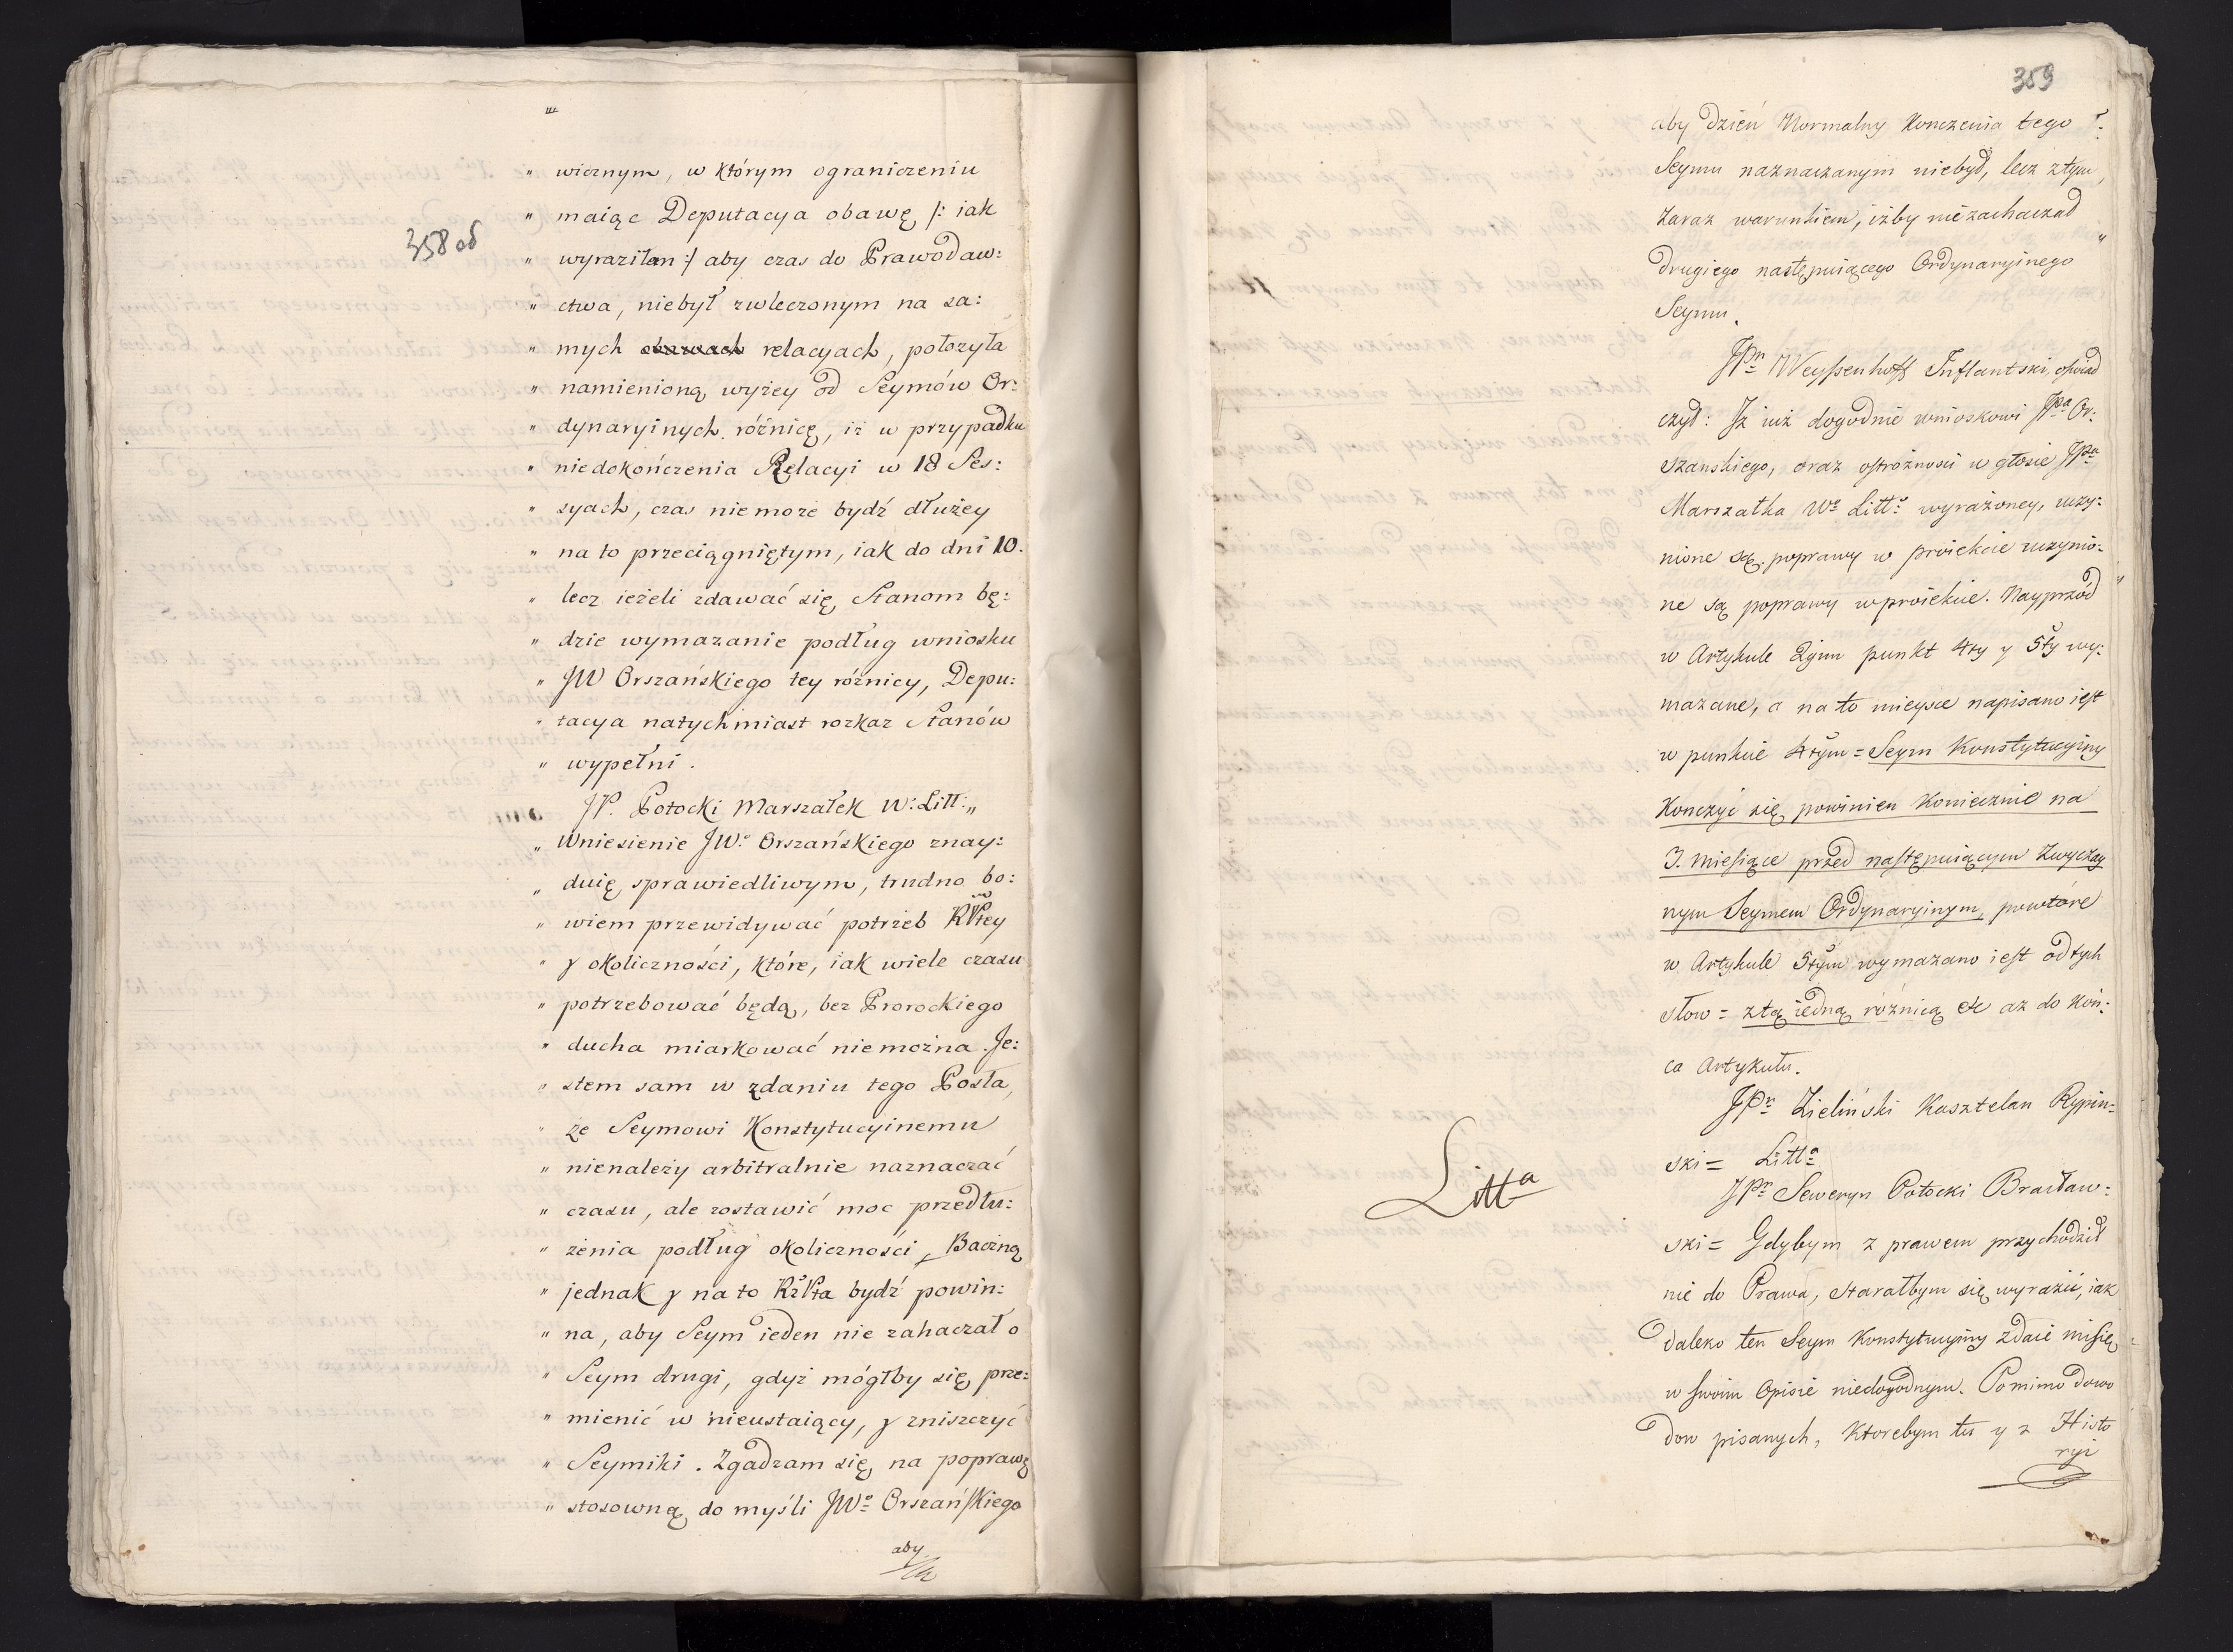 358 od
" wicznym, w którym ograniczeniu
" maiąc Deputacya obawę /: iak
" wyraziłem :/ aby czas do Prawodaw:
" ctwa, niebył zwleczonym na sa:
" mych obawach relacyach, położyła
" namienioną wyżey od Seymów Or:
" dynaryinych różnicę, iż w przypadku
" niedokończenia Relacyi w 18 Ses:
" syach, czas niemoże bydź dłużey
" na to przeciągniętym, iak do dni 10.
" lecz ieżeli zdawać się Stanom bę:
" dzie wymazanie podług wniosku
" JW Orszańskiego tey różnicy, Depu:
" tacya natychmiast rozkaz Stanów
" wypełni.
JP. Potocki Marszałek W: Litt: „
„ Wniesienie JWo Orszańskiego znay:
„ duię sprawiedliwym, trudno bo:
" wiem przewidywać potrzeb RPtey
" y okoliczności, które, iak wiele czasu
" potrzebować będą, bez Prorockiego
" ducha miarkować niemożna. Je:
" stem sam w zdaniu tego Posła,
" że Seymowi Konstytucyinemu
" nienależy arbitralnie naznaczać
" czasu, ale zostawić moc przedłu:
" żenia podług okoliczności, Baczną
" jednak y na to RżPta bydź powin:
" na, aby Seym ieden nie zahaczał o
" Seym drugi, gdyż mógłby się prze:
" mienić w nieustaiący, y zniszczyć
" Seymiki. Zgadzam się na poprawę
" stosowną do myśli JWo Orszańskiego
aby
359
aby dzień Normalny Konczenia tego
Seymu naznaczanym niebył, lecz ztym
zaraz warunkiem, iżby niezachaczał
drugiego następuiącego Ordynaryinego "
Seymu.
JPn Weyssenhoff Inflantski, oświad
czył: Iż iuż dogodnie wnioskowi JPa Or:
szanskiego, oraz ostrożności w głosie JPa
Marszałka Wo Litto wyrażoney, uczy:
nione są poprawy w proiekcie uczynio:
ne są poprawy wproiekcie. Nayprzód "
w Artykule 2gim punkt 4ty y 5ty wy:
mazane, a na to mieysce napisano iest
w punkcie 4tym = Seym Konstytucyiny
Konczyć się powinien Koniecznie na
3. miesiące przed następuiącym Zwyczay
nym Seymem Ordynaryinym, powtóre
w Artykule 5tym wymazano iest od tych
słow = ztą iedną różnicą &c aż do Koń:
ca Artykułu.
JPn Zieliński Kasztelan Rypin:
ski = Litta
Litta
JPn Seweryn Potocki Bracław:
ski = Gdybym z prawem przychodził
nie do Prawa, starałbym się wyrazić, iak
daleko ten Seym Konstytucyiny zdaie misię
w swoim Opisie niedogodnym. Pomimo dowo
dow pisanych, Ktorebym tu y z Histo
ryi